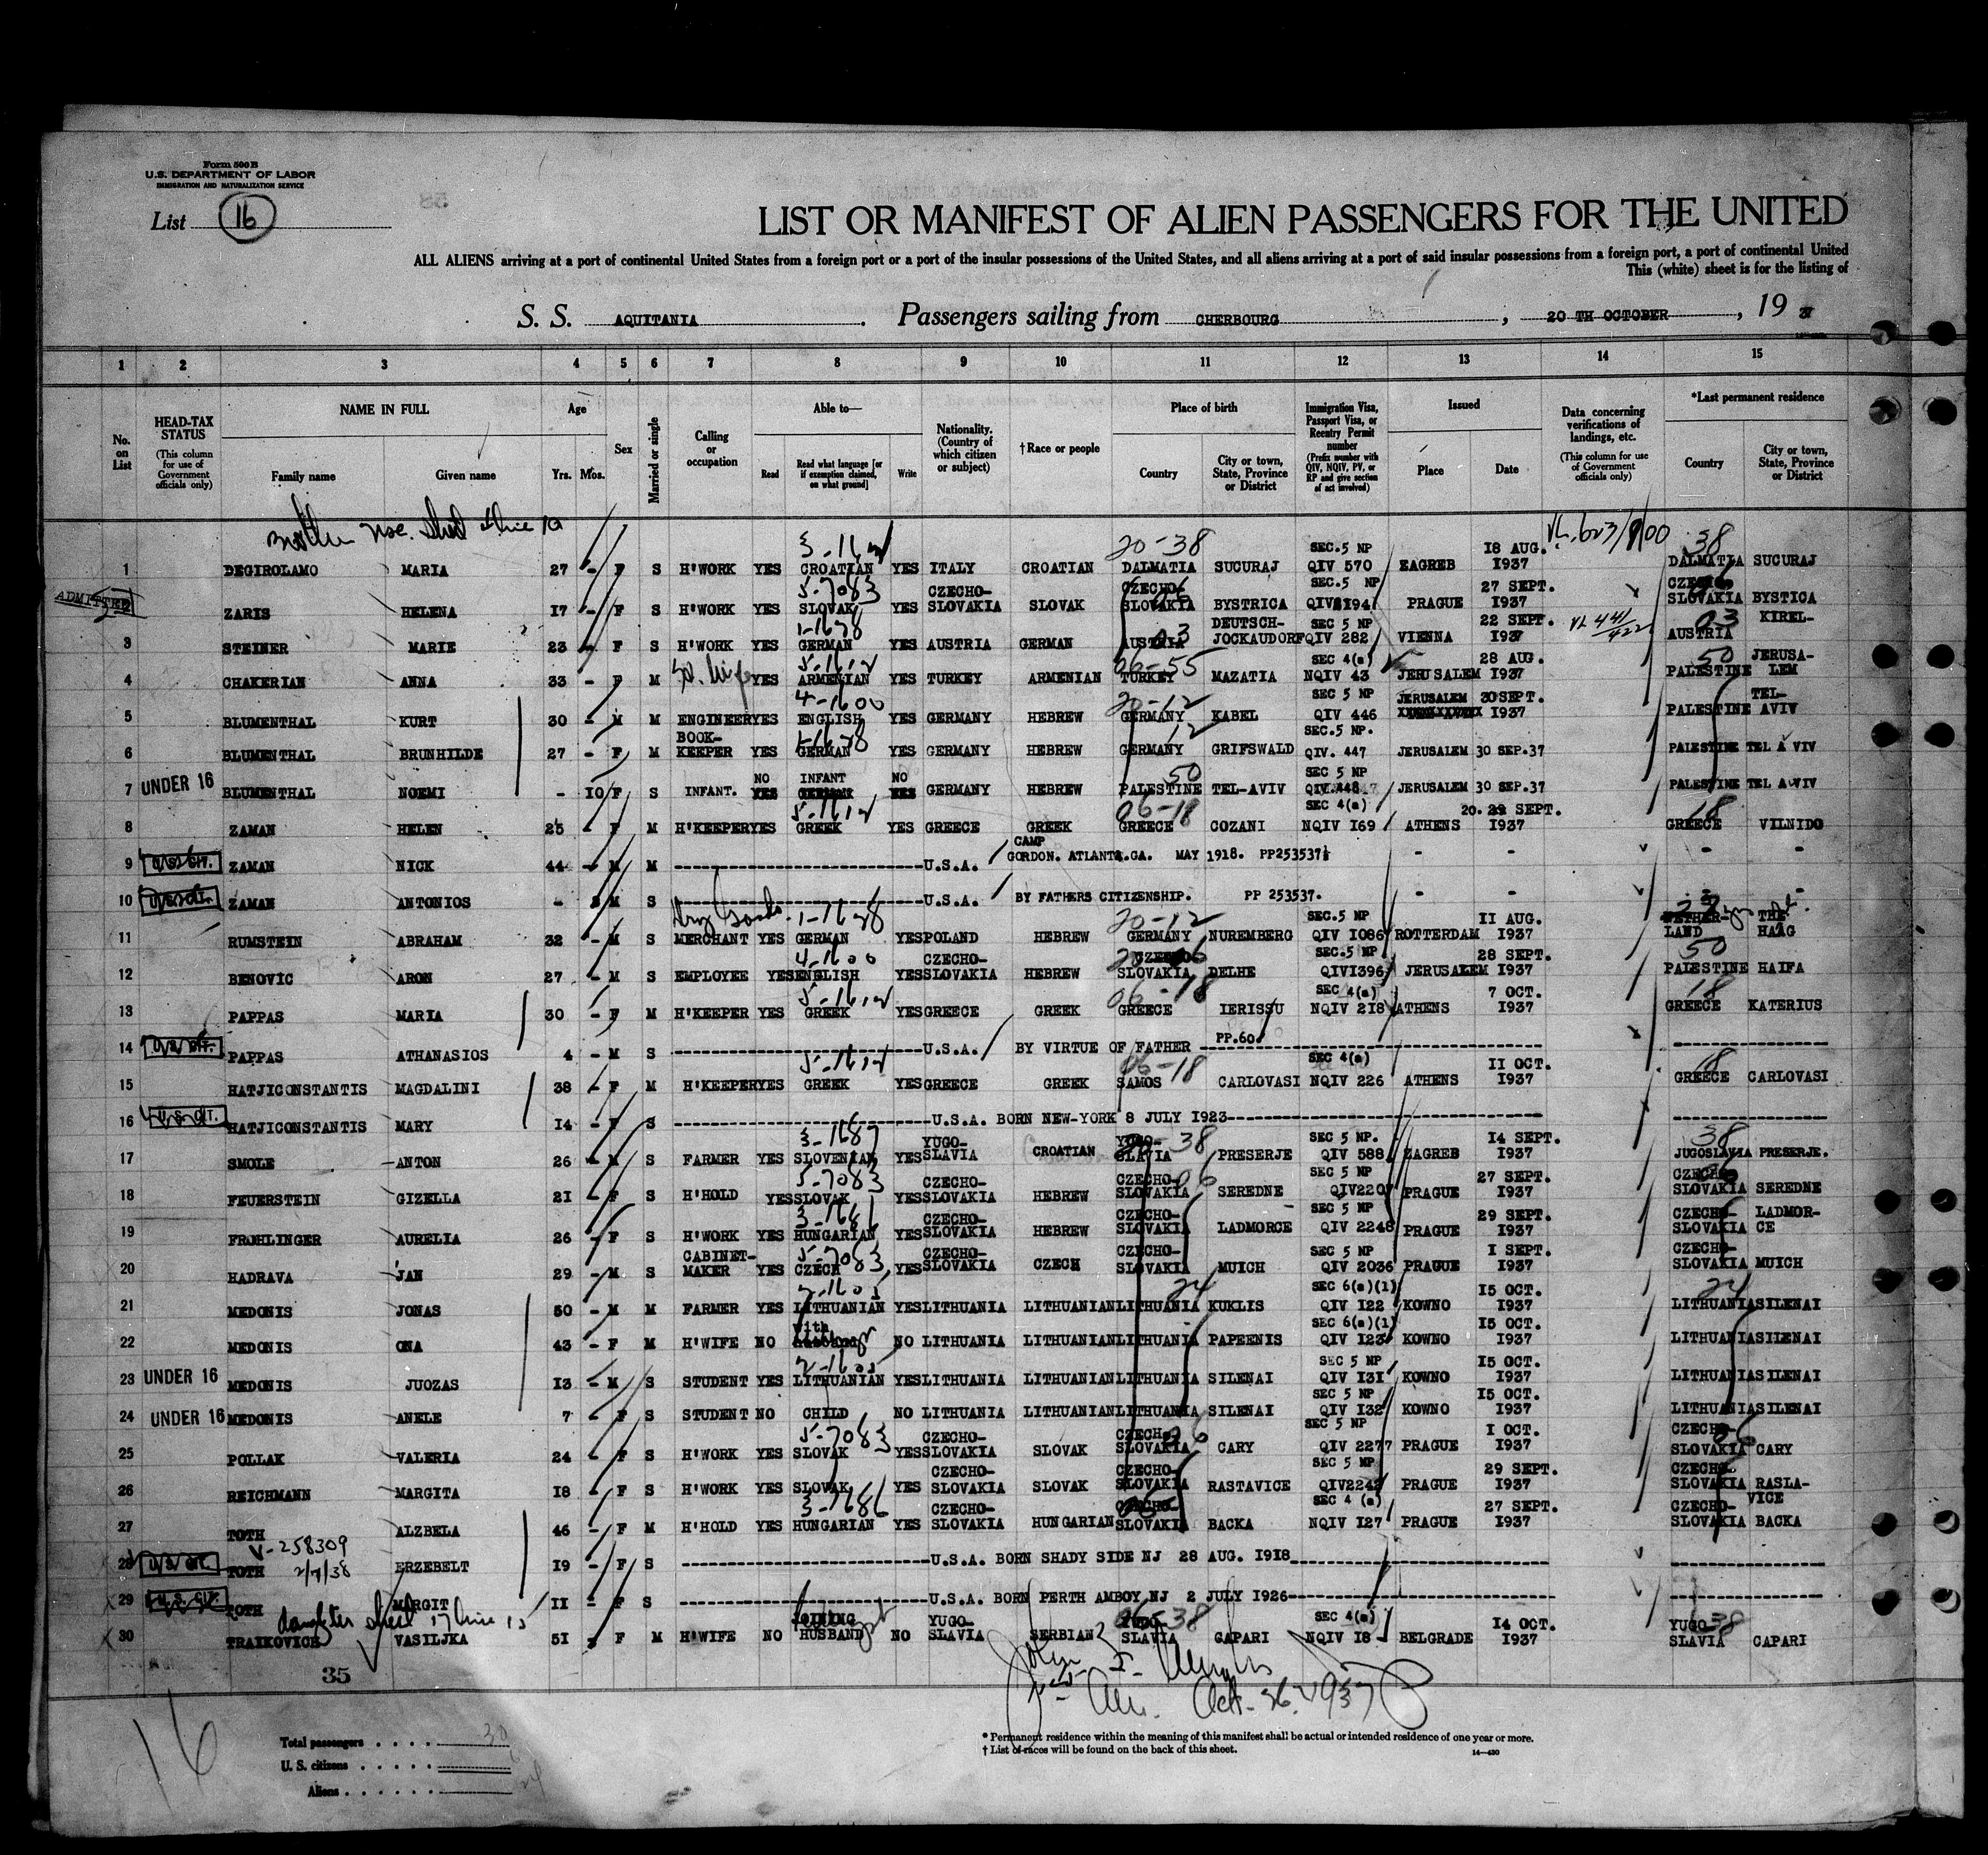 Form 500 B
U.S. DEPARTMENT OF LABOR
IMMIGRATION AND NATURALIZATION SERVICE
List 16
LIST OR MANIFEST OF ALIEN PASSENGERS FOR THE UNITED
ALL ALIENS arriving at a port of continental United States from a foreign port or a port of the insular possessions of the United States, and all aliens arriving at a port of said insular possessions from a foreign port, a port of continental United
This (white) sheet is for the listing of
S. S. AQUITANIA. Passengers sailing from CHERBOURG, 20 TH OCTOBER, 19 37
1 2 3 4 5 6 7 8 9 10 11 12 13 14 15
No. on List
HEAD-TAX STATUS (This column for use of Government officials only)
NAME IN FULL Family name Given name
Age Yrs. Mos.
Sex
Married or single
Calling or occupation
Able to— Read Read what language [or if exemption claimed, on what ground] Write
Nationality. (Country of which citizen or subject)
† Race or people
Place of birth Country City or town, State, Province or District
Immigration Visa, Passport Visa, or Reentry Permit number (Prefix number with QIV, NQIV, PV, or RP and give section of act involved)
Issued Place Date
Data concerning verifications of landings, etc. (This column for use of Government officials only)
*Last permanent residence Country City or town, State, Province or District
1 DEGIROLAMO MARIA 27 - F S H'WORK YES CROATIAN YES ITALY CROATIAN 20-38 DALMATIA SUCURAJ SEC.5 NP QIV 570 ZAGREB 18 AUG. 1937 38 DALMATIA SUCURAJ
ADMITTED
2 ZARIS HELENA 17 - F S H'WORK YES 5-7083 SLOVAK YES CZECHO-SLOVAKIA SLOVAK CZECHO-SLOVAKIA BYSTRICA SEC.5 NP PRAGUE 27 SEPT. 1937 CZECHO-SLOVAKIA BYSTICA
3 STEINER MARIE 23 - F S H'WORK YES 1-1678 GERMAN YES AUSTRIA GERMAN AUSTRIA 03 DEUTSCH-JOCKAUDORF SEC 5 NP QIV 282 VIENNA 22 SEPT. 1937 VL 441/422 03 AUSTRIA KIREL-
4 CHAKERIAN ANNA 33 - F M YES ARMENIAN YES TURKEY ARMENIAN 06-55 TURKEY MAZATIA SEC 4(a) NQIV 43 JERUSALEM 28 AUG. 1937 50 PALESTINE JERUSA-LEM
5 BLUMENTHAL KURT 30 - M M ENGINEER YES 4-1600 ENGLISH YES GERMANY HEBREW 20-12 GERMANY KABEL SEC 5 NP QIV 446 JERUSALEM 30 SEPT. 1937 PALESTINE TEL-AVIV
6 BLUMENTHAL BRUNHILDE 27 - F M BOOK-KEEPER YES 1-1678 GERMAN YES GERMANY HEBREW 12 GERMANY GRIFSWALD SEC.5 NP. QIV. 447 JERUSALEM 30 SEP.37 PALESTINE TEL A VIV
7 UNDER 16 BLUMENTHAL NOEMI - 10 F S INFANT. NO INFANT NO GERMANY HEBREW 50 PALESTINE TEL-AVIV SEC 5 NP QIV.448 JERUSALEM 30 SEP.37 PALESTINE TEL AVIV
8 ZAMAN HELEN 25 - F M H'KEEPER YES GREEK YES GREECE GREEK 06-18 GREECE COZANI SEC 4(a) NQIV 169 ATHENS 20. SEPT. 1937 18 GREECE VILNIDO
9 U.S. CIT. ZAMAN NICK 44 - M M U.S.A. CAMP GORDON. ATLANTA.GA. MAY 1918. PP253537 - - - -
10 U.S. CIT. ZAMAN ANTONIOS - M S U.S.A. BY FATHERS CITIZENSHIP. PP 253537. - - -
11 RUMSTEIN ABRAHAM 32 - M S Dry Goods MERCHANT YES 1-1678 GERMAN YES POLAND HEBREW 20-12 GERMANY NUREMBERG SEC.5 NP QIV 1086 ROTTERDAM 11 AUG. 1937 NETHER-LAND THE HAAG
12 BENOVIC ARON 27 - M S EMPLOYEE YES 4-1600 ENGLISH YES CZECHO-SLOVAKIA HEBREW CZECHO-SLOVAKIA DELHE SEC.5 NP QIV1396 JERUSALEM 28 SEPT. 1937 50 PALESTINE HAIFA
13 PAPPAS MARIA 30 - F M H'KEEPER YES GREEK YES GREECE GREEK 06-18 GREECE IERISSU SEC 4(a) NQIV 218 ATHENS 7 OCT. 1937 18 GREECE KATERIUS
14 U.S. CIT. PAPPAS ATHANASIOS 4 - M S U.S.A. BY VIRTUE OF FATHER PP.60
15 HATJICONSTANTIS MAGDALINI 38 - F M H'KEEPER YES GREEK YES GREECE GREEK 06-18 SAMOS CARLOVASI SEC 4(a) NQIV 226 ATHENS 11 OCT. 1937 18 GREECE CARLOVASI
16 U.S. CIT. HATJICONSTANTIS MARY 14 - F S U.S.A. BORN NEW-YORK 8 JULY 1923
17 SMOLE ANTON 26 - M S FARMER YES 3-1687 SLOVENIAN YES YUGO-SLAVIA CROATIAN YUGO-SLAVIA 38 PRESERJE SEC 5 NP. QIV 588 ZAGREB 14 SEPT. 1937 38 JUGOSLAVIA PRESERJE.
18 FEUERSTEIN GIZELLA 21 - F S H'HOLD YES 5-7083 SLOVAK YES CZECHO-SLOVAKIA HEBREW CZECHO-SLOVAKIA 06 SEREDNE SEC 5 NP QIV2207 PRAGUE 27 SEPT. 1937 CZECHO-SLOVAKIA SEREDNE
19 FROHLINGER AURELIA 26 - F S H'WORK YES HUNGARIAN YES CZECHO-SLOVAKIA HEBREW CZECHO-SLOVAKIA LADMORCE SEC 5 NP QIV 2248 PRAGUE 29 SEPT. 1937 CZECHO-SLOVAKIA LADMOR-CE
20 HADRAVA JAN 29 - M S CABINET-MAKER YES 5-7083 CZECH YES CZECHO-SLOVAKIA CZECH CZECHO-SLOVAKIA MUICH SEC 5 NP QIV 2036 PRAGUE 1 SEPT. 1937 CZECHO-SLOVAKIA MUICH
21 MEDONIS JONAS 50 - M M FARMER YES LITHUANIAN YES LITHUANIA LITHUANIAN LITHUANIA 24 KUKLIS SEC 6(a)(1) QIV 122 KOWNO 15 OCT. 1937 24 LITHUANIA SILENAI
22 MEDONIS ONA 43 - F M H'WIFE NO with husband NO LITHUANIA LITHUANIAN LITHUANIA PAPEENIS SEC 6(a)(1) QIV 123 KOWNO 15 OCT. 1937 LITHUANIA SILENAI
23 UNDER 16 MEDONIS JUOZAS 13 - M S STUDENT YES LITHUANIAN YES LITHUANIA LITHUANIAN LITHUANIA SILENAI SEC 5 NP QIV 131 KOWNO 15 OCT. 1937 LITHUANIA SILENAI
24 UNDER 16 MEDONIS ANELE 7 - F S STUDENT NO CHILD NO LITHUANIA LITHUANIAN LITHUANIA SILENAI SEC 5 NP QIV 132 KOWNO 15 OCT. 1937 LITHUANIA SILENAI
25 POLLAK VALERIA 24 - F S H'WORK YES 5-7083 SLOVAK YES CZECHO-SLOVAKIA SLOVAK CZECHO-SLOVAKIA CARY SEC 5 NP QIV 2277 PRAGUE 1 OCT. 1937 CZECHO-SLOVAKIA CARY
26 REICHMANN MARGITA 18 - F S H'WORK YES SLOVAK YES CZECHO-SLOVAKIA SLOVAK CZECHO-SLOVAKIA RASTAVICE SEC 5 NP QIV2242 PRAGUE 29 SEPT. 1937 CZECHO-SLOVAKIA RASLA-VICE
27 TOTH ALZBELA 46 - F M H'HOLD YES 3-1686 HUNGARIAN YES CZECHO-SLOVAKIA HUNGARIAN CZECHO-SLOVAKIA BACKA SEC 4 (a) NQIV 127 PRAGUE 27 SEPT. 1937 CZECHO-SLOVAKIA BACKA
V-258309
28 U.S. CIT. TOTH 2/7/38 ERZEBELT 19 - F S U.S.A. BORN SHADY SIDE NJ 28 AUG. 1918
29 U.S. CIT. TOTH MARGIT 11 - F S U.S.A. BORN PERTH AMBOY NJ 2 JULY 1926
daughter sheet 17 line 15
30 TRAIKOVICH VASILJKA 51 F M H'WIFE NO JOINING HUSBAND NO YUGO-SLAVIA SERBIAN YUGO-SLAVIA 38 CAPARI SEC 4(a) NQIV 18 BELGRADE 14 OCT. 1937 YUGO-SLAVIA 38 CAPARI
35
Oct. 26 1937
16
Total passengers . . . . 30
U. S. citizens . . . . .
Aliens . . . . . .
* Permanent residence within the meaning of this manifest shall be actual or intended residence of one year or more.
† List of races will be found on the back of this sheet.
14—430